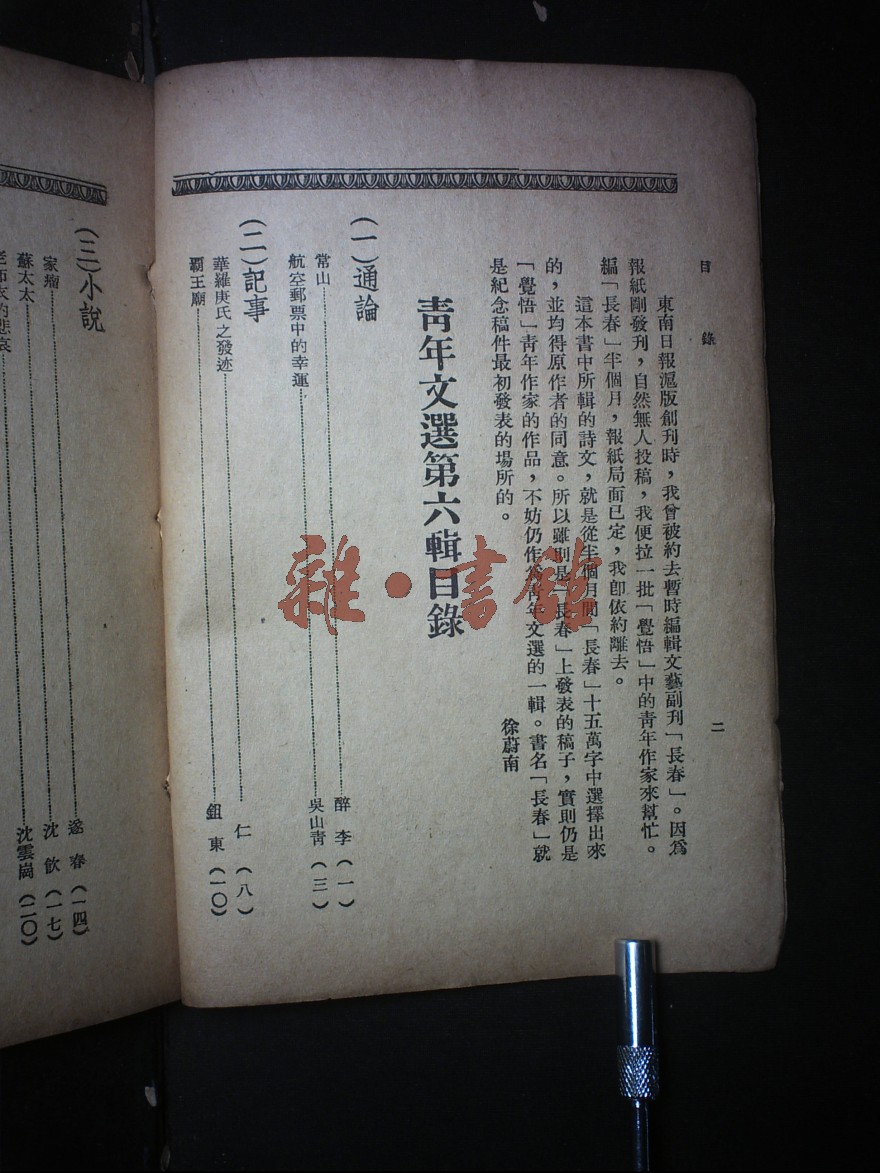 目錄
二
東南日報滬版創刊時，我曾被約去暫時編輯文藝副刊「長春」。因爲
報紙剛發刊，自然無人投稿，我便拉一批「覺悟」中的青年作家來幫忙。
編「長春」半個月，報紙局面已定，我卽依約離去。
這本書中所輯的詩文，就是從半個月間「長春」十五萬字中選擇出來
的，並均得原作者的同意。所以雖則是「長春」上發表的稿子，實則仍是
「覺悟」青年作家的作品，不妨仍作爲青年文選的一輯。書名「長春」就
是紀念稿件最初發表的場所的。
徐蔚南
靑年文選第六輯目錄
（一）通論
常山 醉李（一）
航空郵票中的幸運 吳山青（三）
（二）記事
華羅庚氏之發迹 仁（八）
覇王廟 鈕東（一〇）
（三）小說
家瘤 遂春（一四）
蘇太太 沈飮（一七）
的悲哀 沈雲崗（二〇）
雜·書館